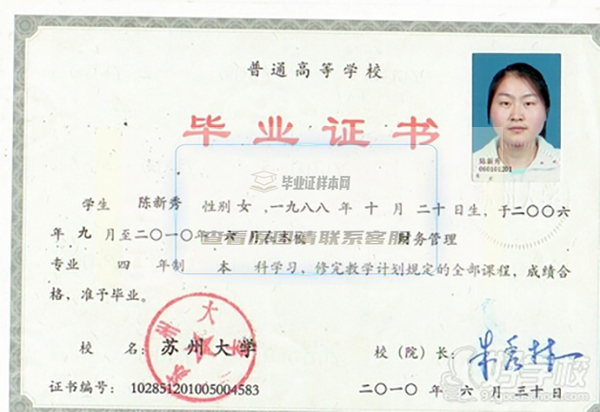 普通高等学校
毕业证书
陈新秀
060101201
毕业证样本网
学生 陈新秀 性别 女,一九八八年 十 月 二十 日生,于二〇〇六
年 九 月至二〇一〇年 六 月在本校 财务管理
查看原图请联系客服
专业 四 年制 本 科学习,修完教学计划规定的全部课程,成绩合
格,准予毕业。
校 名: 苏州大学
校(院)长:
证书编号: 102851201005004583
二〇一〇年 六 月 三十 日